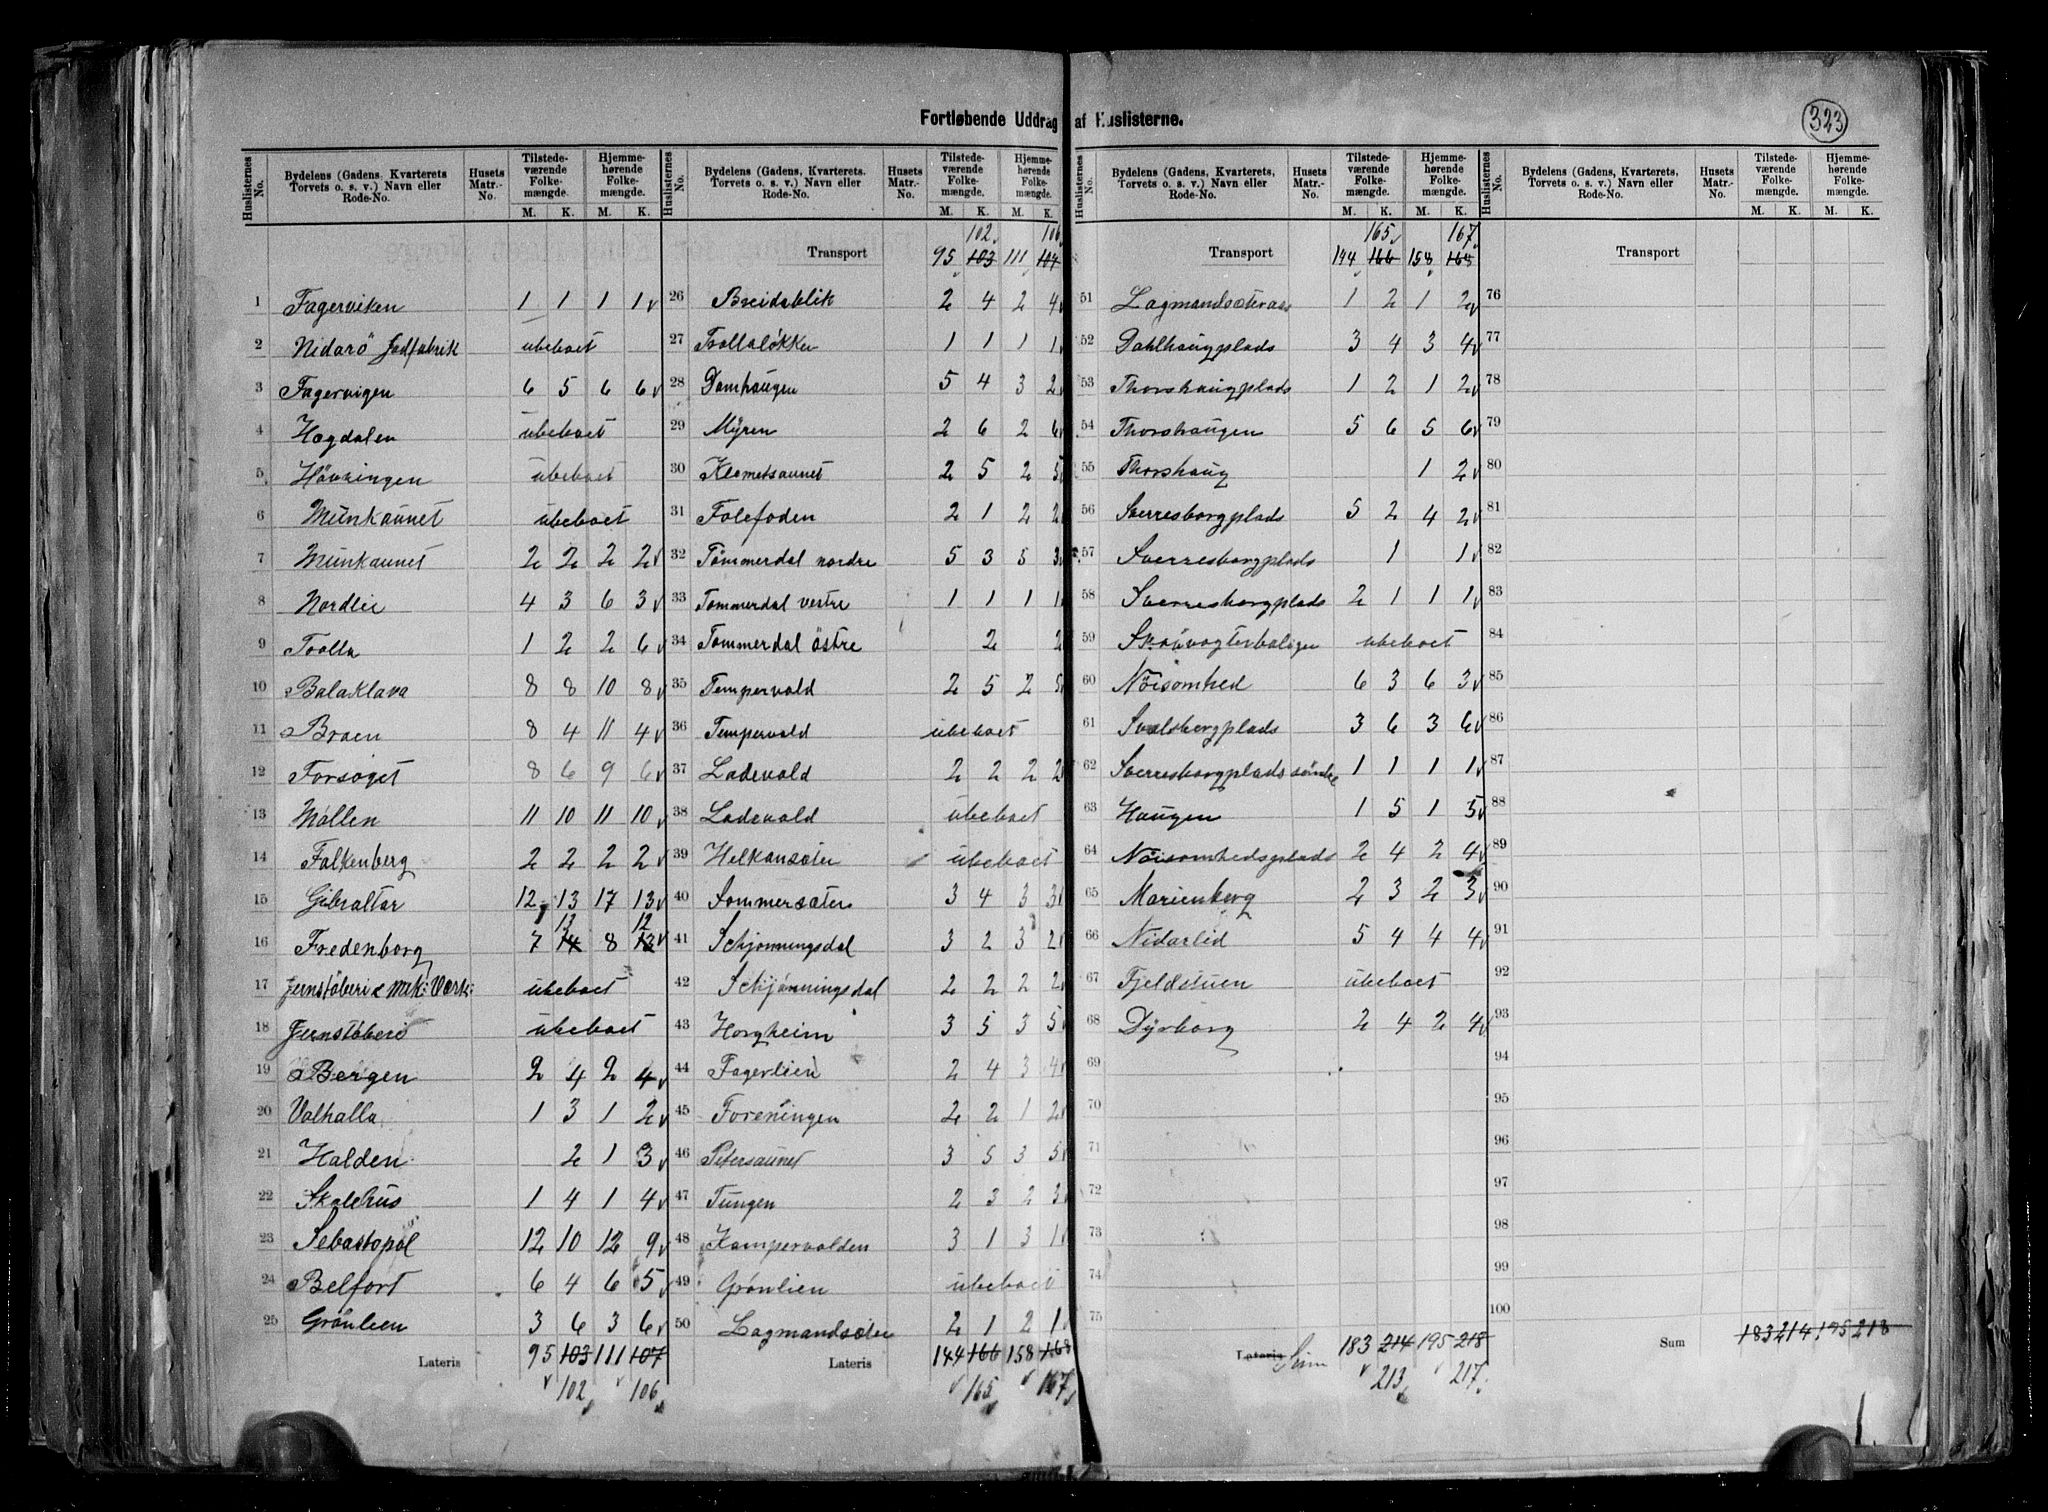 Fortløbende Uddrag af Huslisterne.
323
Huslisternes No. | Bydelens (Gadens, Kvarterets, Torvets o. s. v.) Navn eller Rode-No. | Husets Matr.-No. | Tilstedeværende Folkemængde. M. K. | Hjemmehørende Folkemængde. M. K.
1 Fagerviken 1 1 1 1
2 Nidarö Jodfabrik ubeboet
3 Fagervigen 6 5 6 6
4 Høgdalen ubeboet
5 Høvringen ubeboet
6 Munkaunet ubeboet
7 Munkaunet 2 2 2 2
8 Nordlie 4 3 6 3
9 Trolla 1 2 2 6
10 Balaklava 8 8 10 8
11 Braen 8 4 11 4
12 Forsøget 8 6 9 6
13 Møllen 11 10 11 10
14 Falkenberg 2 2 2 2
15 Gibraltar 12 13 17 13
16 Fredenborg 7 14 13 8 13 12
17 Jernstøberi & Mek: Værk: ubeboet
18 Jernstøberi ubeboet
19 Bergen 2 4 2 4
20 Valhalla 1 3 1 2
21 Halden 2 1 3
22 Skalehus 1 4 1 4
23 Sebastopol 12 10 12 9
24 Belfort 6 4 6 5
25 Grönlien 3 6 3 6
Lateris 95 103 111 107
102 106
Huslisternes No. | Bydelens (Gadens, Kvarterets, Torvets o. s. v.) Navn eller Rode-No. | Husets Matr.-No. | Tilstedeværende Folkemængde. M. K. | Hjemmehørende Folkemængde. M. K.
102 106
Transport 95 103 111 107
26 Breidablik 2 4 2 4
27 Trolla­løkken 1 1 1 1
28 Damhaugen 5 4 3 2
29 Myren 2 6 2 6
30 Klemetsaunet 2 5 2 5
31 Folefoden 2 1 2 2
32 Tömmerdal nordre 5 3 5 3
33 Tømmerdal vestre 1 1 1 1
34 Tømmerdal östre 2 2
35 Tempervold 2 5 2 5
36 Tempervold ubeboet
37 Ladevold 2 2 2 2
38 Ladevold ubeboet
39 Helkansæter ubeboet
40 Sommersæter 3 4 3 3
41 Schjønningsdal 3 2 3 2
42 Schjønningsdal 2 2 2 2
43 Horgheim 3 5 3 5
44 Fagerlien 2 4 3 4
45 Foreningen 2 2 1 2
46 Petersaunet 3 5 3 5
47 Tungen 2 3 2 3
48 Kampervolden 3 1 3 1
49 Grønlien ubeboet
50 Lagmandsæter 2 1 2 1
Lateris 144 166 158 168
165 167
Huslisternes No. | Bydelens (Gadens, Kvarterets, Torvets o. s. v.) Navn eller Rode-No. | Husets Matr.-No. | Tilstedeværende Folkemængde. M. K. | Hjemmehørende Folkemængde. M. K.
165 167
Transport 144 166 158 168
51 1 2 1 2
52 Dahlhaugplads 3 4 3 4
53 Thorshaugplads 1 2 1 2
54 Thorshaugen 5 6 5 6
55 Thorshaug 1 2
56 Sverresborgplads 5 2 4 2
57 Sverresborgplads 1 1
58 Sverresborgplads 2 1 1 1
59 ubeboet
60 Nöisomhed 6 3 6 3
61 3 6 3 6
62 Sverresborgplads søndre 1 1 1 1
63 Haugen 1 5 1 5
64 Nöisomhedsplads 2 4 2 4
65 Marienberg 2 3 2 3
66 Nidarlid 5 4 4 4
67 Fjeldstuen ubeboet
68 Dyrborg 2 4 2 4
69
70
71
72
73
74
75
Lateris Sum 183 214 195 218
213 217
Huslisternes No. | Bydelens (Gadens, Kvarterets, Torvets o. s. v.) Navn eller Rode-No. | Husets Matr.-No. | Tilstedeværende Folkemængde. M. K. | Hjemmehørende Folkemængde. M. K.
Transport
76
77
78
79
80
81
82
83
84
85
86
87
88
89
90
91
92
93
94
95
96
97
98
99
100
Sum 183 214 195 218